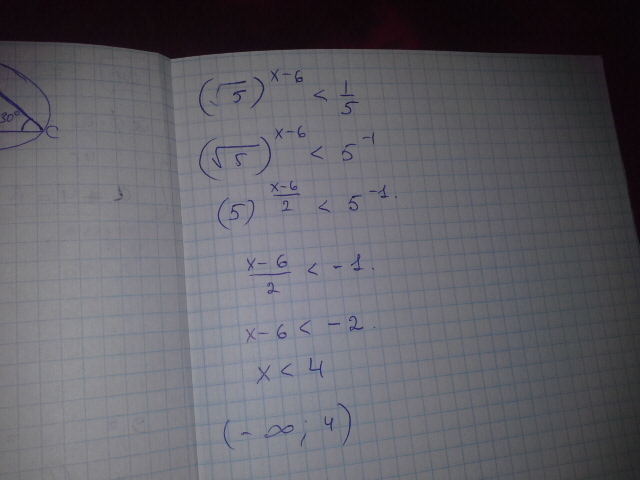 30° C
(√5)^(x-6) < 1/5
(√5)^(x-6) < 5^(-1)
(5)^((x-6)/2) < 5^(-1).
(x-6)/2 < -1.
x-6 < -2.
x < 4
(-∞; 4)